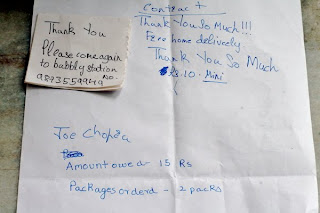 Thank You
Please come again
to bubbly station
No.
9893559949
Contract
Thank You So Much!!!
Free home delively
Thank You So Much
Rs.10. Mini
Joe Chopra
Amount owea 15 Rs
Packages orderd - 2 packs